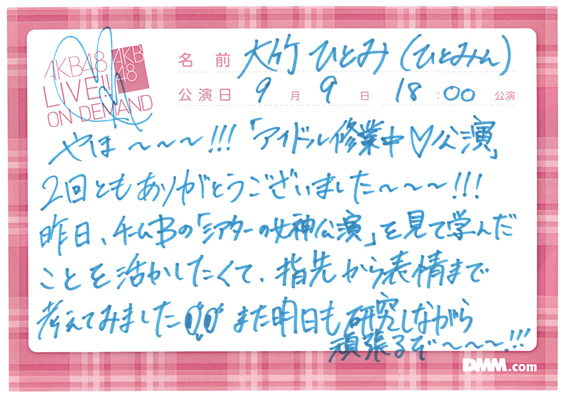 AKB48
LIVE!!
ON DEMAND
AKB
48
名前 大竹ひとみ(ひとみん)
公演日 9月9日 18:00公演
やほ〜〜〜!!!「アイドル修業中♡公演」
2回ともありがとうございました〜〜〜!!!
昨日、チームBの「シアターの女神公演」を見て学んだ
ことを活かしたくて、指先から表情まで
考えてみました また明日も研究しながら
頑張るぞ〜〜〜!!!
DMM.com